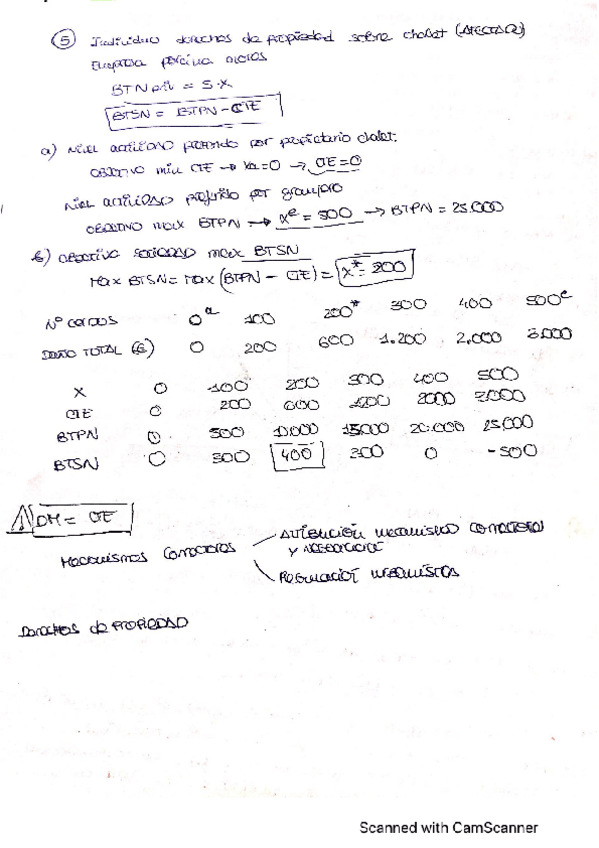 ⑤ Individuo derechos de propiedad sobre chalet (AFECTADO)
Empresa porcina ruidos
BTN = 5·X
BTSN = BTPN - CTE
a) Nivel actividad preferido por propietario chalet:
OBJETIVO min CTE → Xa=0 → CTE=0
Nivel actividad preferido por granjero
OBJETIVO max BTPN → Xe = 500 → BTPN = 25.000
b) OBJETIVO SOCIEDAD max BTSN
Max BTSN = Max (BTPN - CTE) = X* = 200
Nº CERDOS 0a 100 200* 300 400 500e
DAÑO TOTAL (€) 0 200 600 1.200 2.000 3.000
X 0 100 200 300 400 500
CTE 0 200 600 1200 2000 3000
BTPN 0 500 10.000 15.000 20.000 25.000
BTSN 0 300 400 300 0 -500
⚠ DM = CTE
MECANISMOS CORRECTORES
ATRIBUCIÓN MECANISMOS CORRECTORES
Y NEGOCIACIÓN
REGULACIÓN
DERECHOS de PROPIEDAD
Scanned with CamScanner